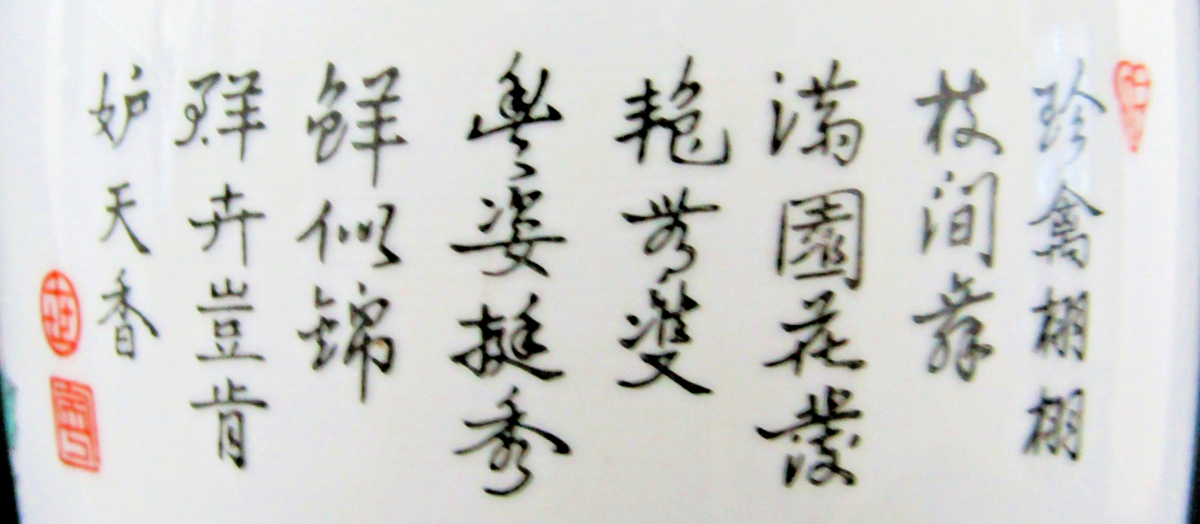 珍禽栩栩
枝间舞
满園花發
艳無雙
豊姿挺秀
鲜似锦
群卉豈肯
妒天香